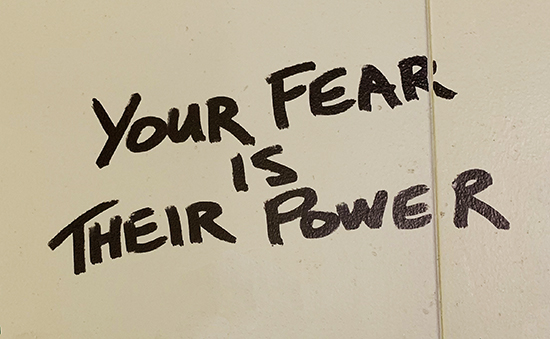 YOUR FEAR
IS
THEIR POWER